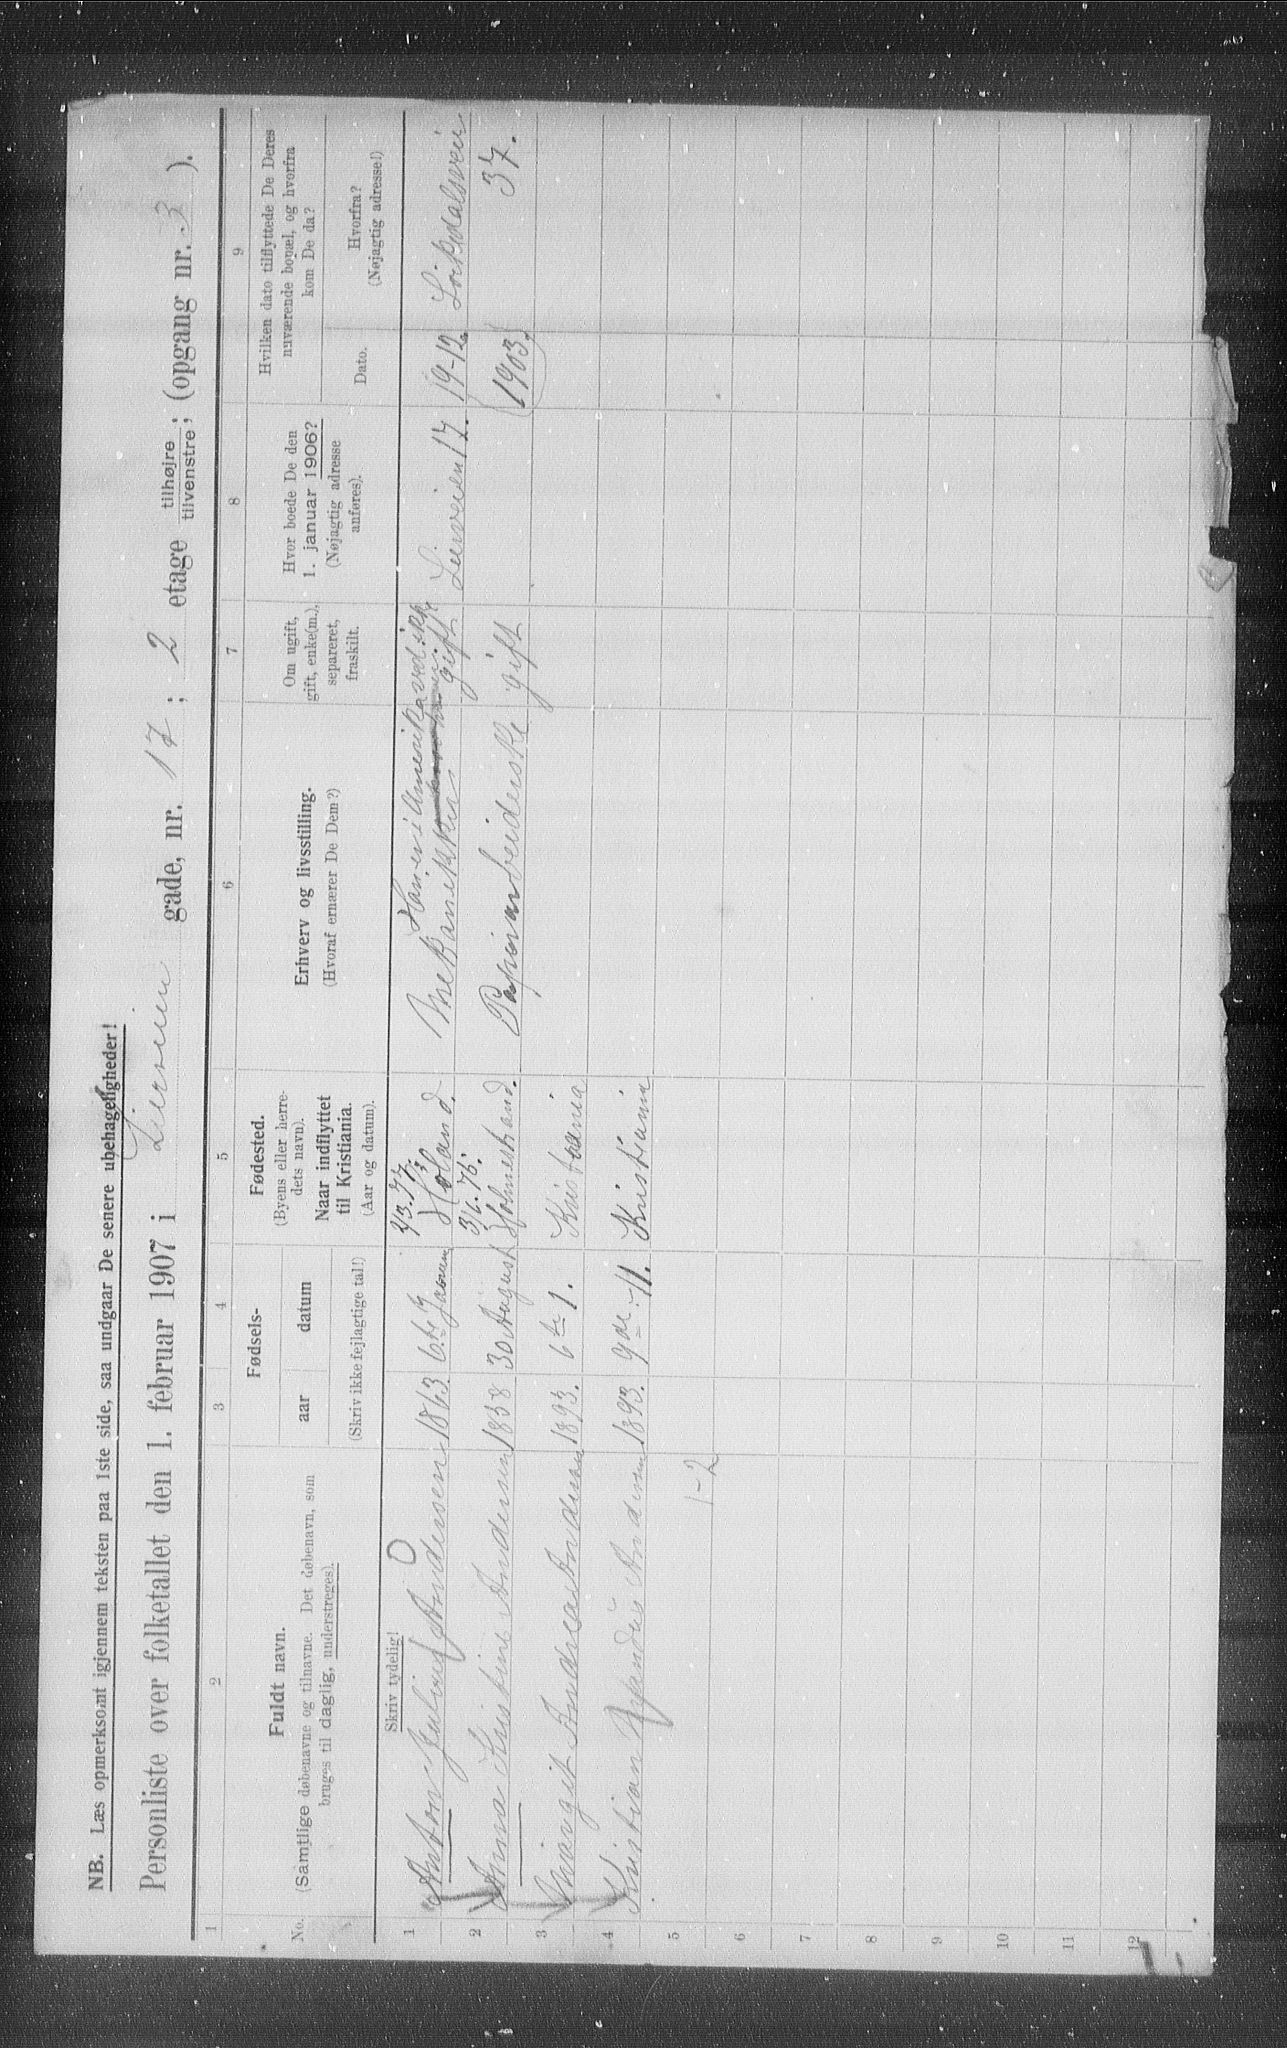 NB. Læs opmerksomt igjennem teksten paa 1ste side, saa undgaar De senere ubehageligheder!
Personliste over folketallet den 1. februar 1907 i Lierveien gade, nr. 17; 2 etage tilhøjre / tilvenstre; (opgang nr. 3).
1 2 3 4 5 6 7 8 9
No.
Fuldt navn.
(Samtlige døbenavne og tilnavne. Det døbenavn, som
bruges til daglig, understreges).
Skriv tydelig!
Fødsels-
aar datum
(Skriv ikke fejlagtige tal!)
Fødested.
(Byens eller herre-
dets navn).
Naar indflyttet
til Kristiania.
(Aar og datum).
Erhverv og livsstilling.
(Hvoraf ernærer De Dem?)
Om ugift,
gift, enke(m.),
separeret,
fraskilt.
Hvor boede De den
1. januar 1906?
(Nøjagtig adresse
anføres).
Hvilken dato tilflyttede De Deres
nuværende bopæl, og hvorfra
kom De da?
Dato.
Hvorfra?
(Nøjagtig adresse!)
Han er i Amerika
1 Anton Andersen 1863. 6te Høland. Mekaniker gift Lierveien 17. 19-12. 
2 Anna Kristine Andersen 1858 30 August Holmestrand. Papirarbeiderske gift (1903) 37.
3 Margit Andrea Andersen 1893. 6te 1. Kristiania
4 Kristian Andersen 1893. 9de 11. Kristiania
5 1-2
6
7
8
9
10
11
12